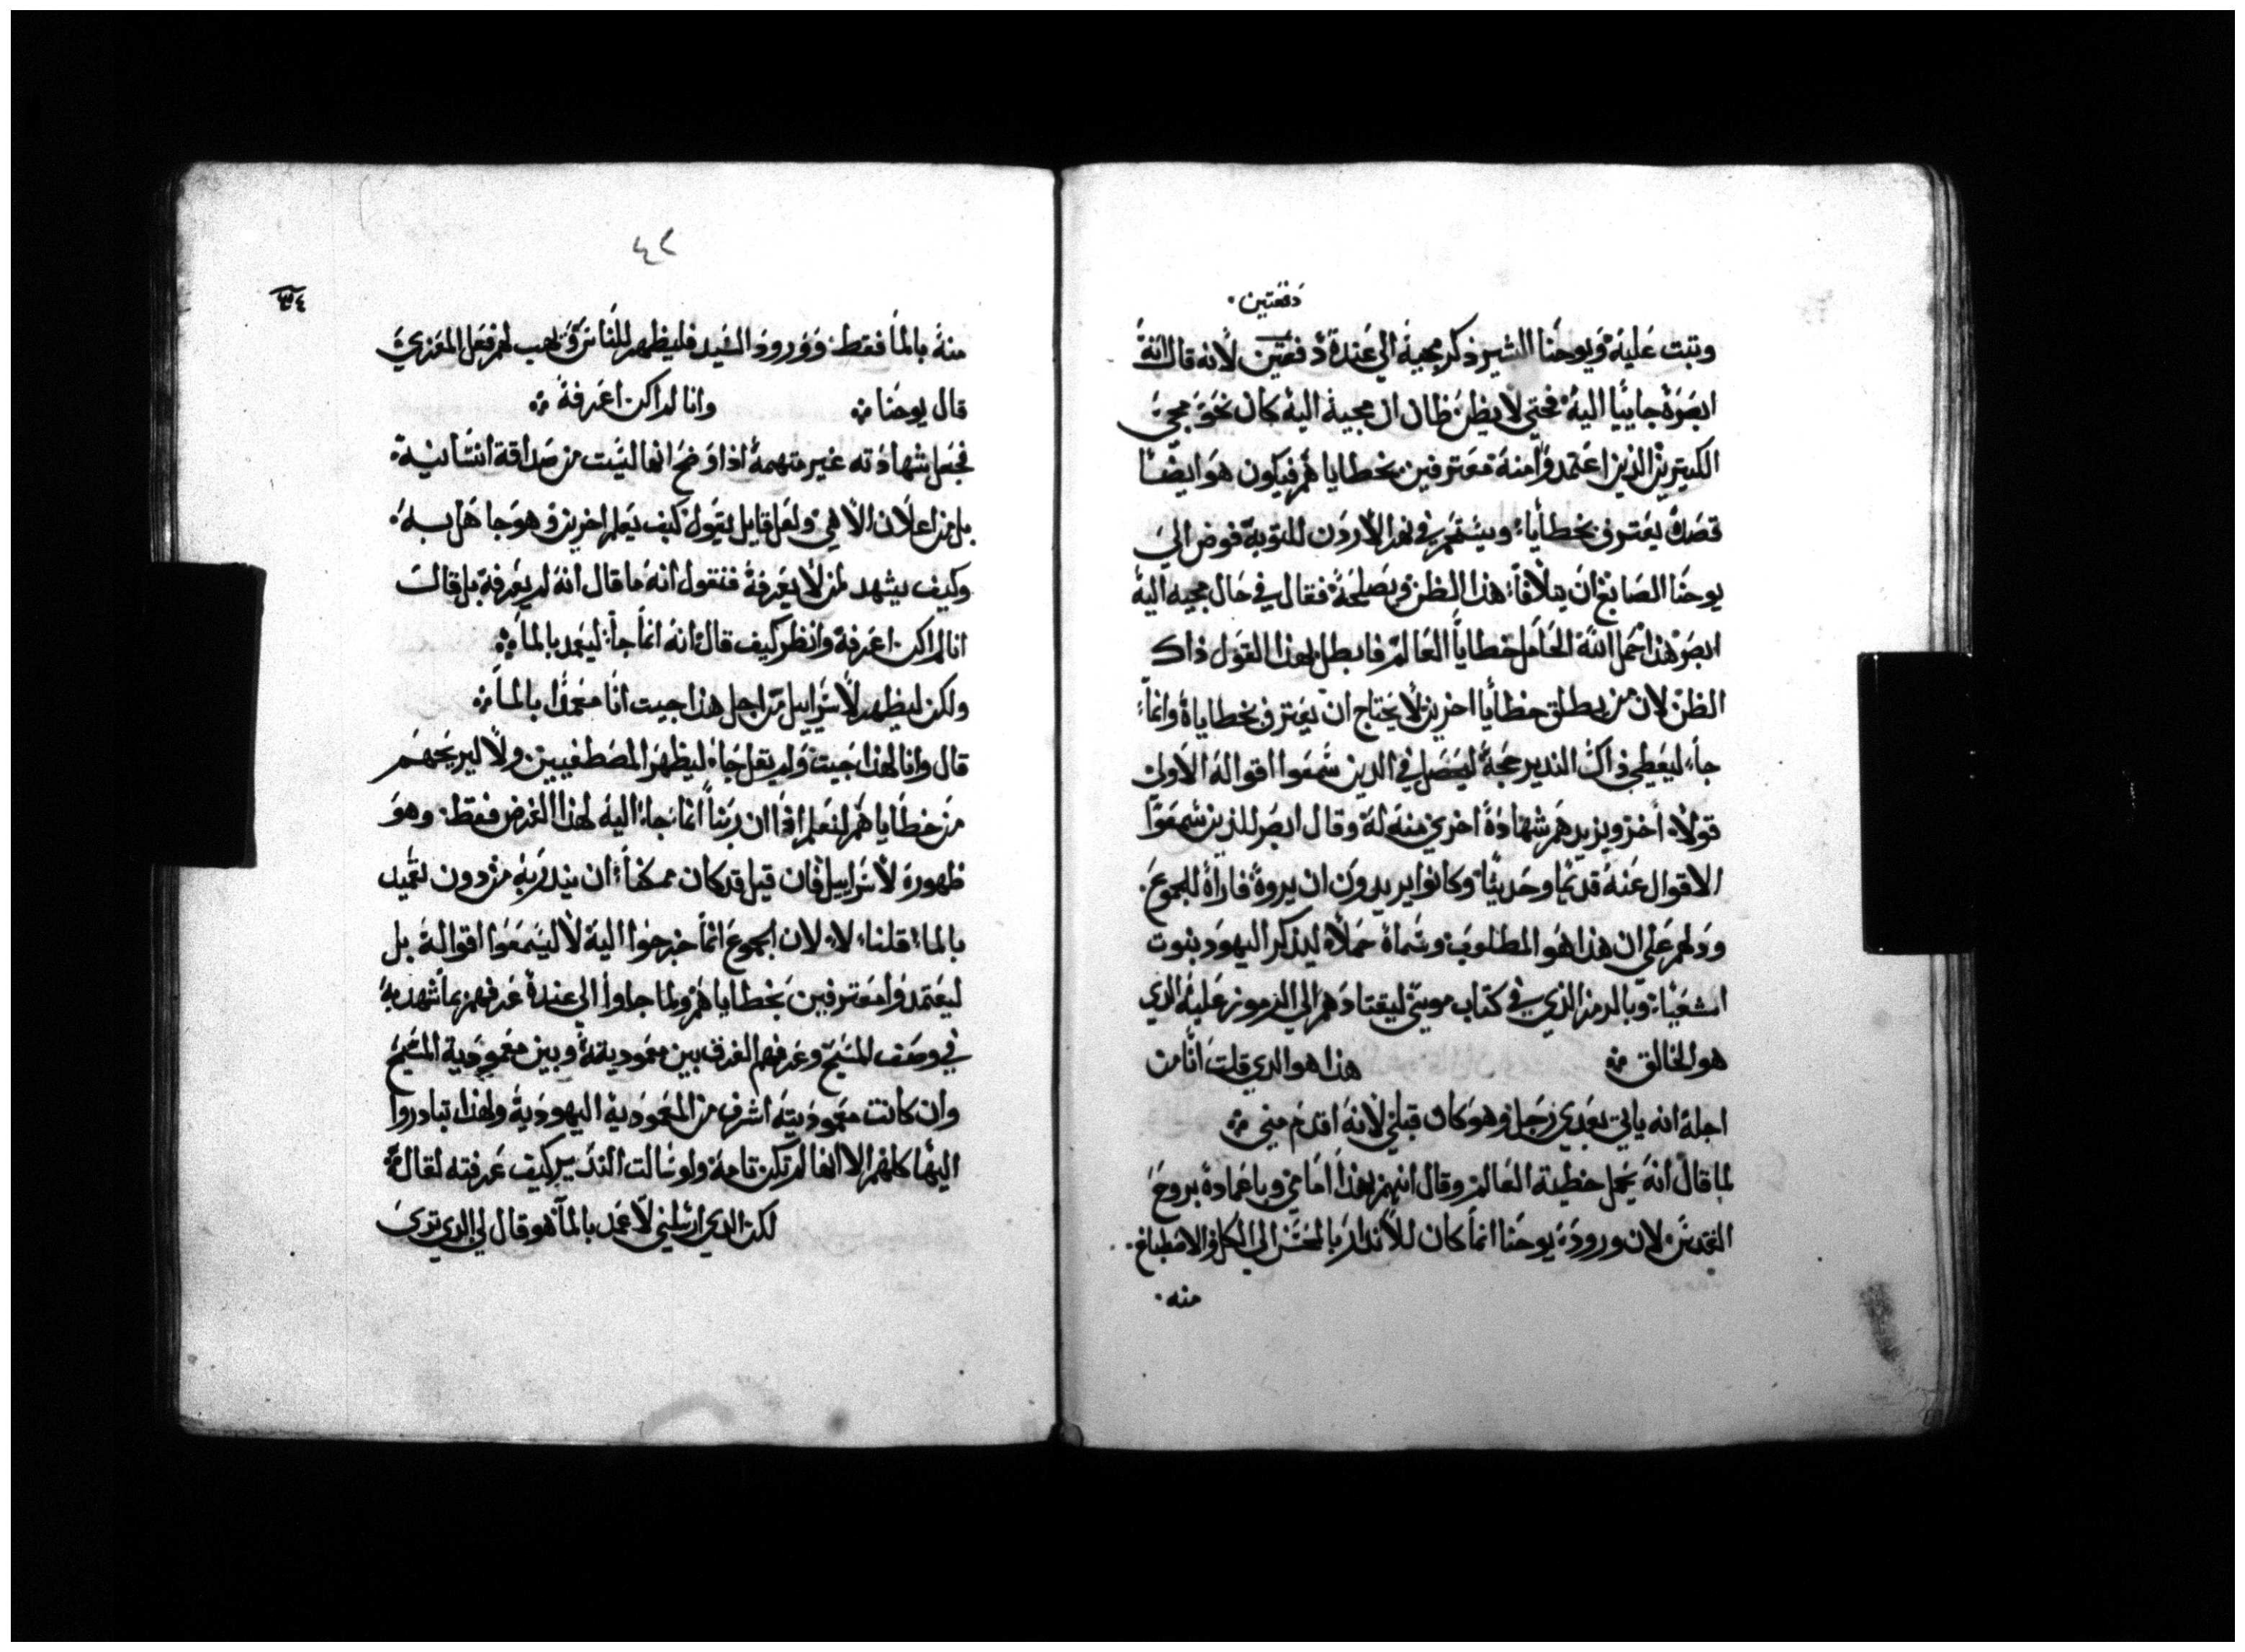 دفعتين.
وبتت عليه ويوحنا البشير ذكر مجية الي عنده دفعتين لانه قال انه
ابصره جاييا اليه فحتي لا يظن ظان ان مجيه اليه كان نحو مجي
الكتيرين الذين اعتمدوا منه معترفين بخطاياهم فيكون هو ايضا
قصده يعترف بخطاياه ويستحم في نهر الاردن للتوبة فوض الي
يوحنا الصابغ ان يتلافا هذا الظن ويصلحه فقال في حال مجيه اليه
ابصر هذا حمل الله الحامل خطايا العالم فابطل بهذا القول ذاك
الظن لان من يطلق خطايا اخرين لا يحتاج ان يعترف بخطاياه وانما
جا ليعطي ذاك الندير حجة ليحصل في الدين سمعوا اقواله الاولي
قولا اخر ويزيدهم شهادة اخري منه له وقال ابصر للذين سمعوا
الاقوال عنه قديما وحديثا وكانوا يريدون ان يروه فاراه للجموع.
ودلهم علي ان هذا هو المطلوب وسماه حملا ليذكر اليهود بنبوت
اشعيا وبالرمز الذي في كتاب موسي ليقتادهم الي المرموز عليه الدي
هو الخالق ⁘ هذا هو الدي قلت انا من
اجله انه ياتي بعدي رجل وهو كان قبلي لانه اقدم مني ⁘
لما قال انه يحمل خطية العالم وقال انهم بهذا امامي وباعماده بروح
القدس لان ورود يوحنا انما كان للاندار بالمحسن الي الكل والاصطباغ.
منه.
٤٢
٣٤
منه بالما فقط وورود السيد فليظهر للناس ويهب لهم فعل المعزي
قال يوحنا ⁘ وانا لم اكن اعرفه ⁘
فجعل شهادته غير متهمة اذ اوضح انها ليست من صداقة انسانية.
بل من اعلان الاهي ولعل قايل يقول كيف يعلم اخرين وهو جاهل به.
وكيف يشهد لمن لا يعرفه فنقول انه ما قال انه لم يعرفه بل قال
انا لم اكن اعرفه وانظر كيف قال انه انما جا ليعمد بالما ⁘
ولكن ليظهر لاسراييل من اجل هذا جيت انا معمدا بالما ⁘
قال وانا لهذا جيت ولم يقل جا ليظهر المصطفيين ولا ليريحهم
من خطاياهم لنعلم اذا ان ربنا انما جا اليه لهذا الغرض فقط. وهو
ظهوره لاسراييل فان قيل قد كان ممكنا ان يندر به من دون تعميد
بالما قلنا لا لان الجموع انما خرجوا اليه لا ليسمعوا اقواله بل
ليعتمدوا معترفين بخطاياهم ولما جاوا الي عنده عرفهم بما شهد به
في وصف المسيح وعرفهم الفرق بين معموديته وبين معمودية المسيح
وان كانت معموديته اشرف من المعمودية اليهودية ولهذا تبادروا
اليها كلهم الا انها لم تكن تامة ولو سالت الندير كيف عرفته لقال ⁘
لكن الدي ارسلني لاعمد بالما هو قال لي الدي تري